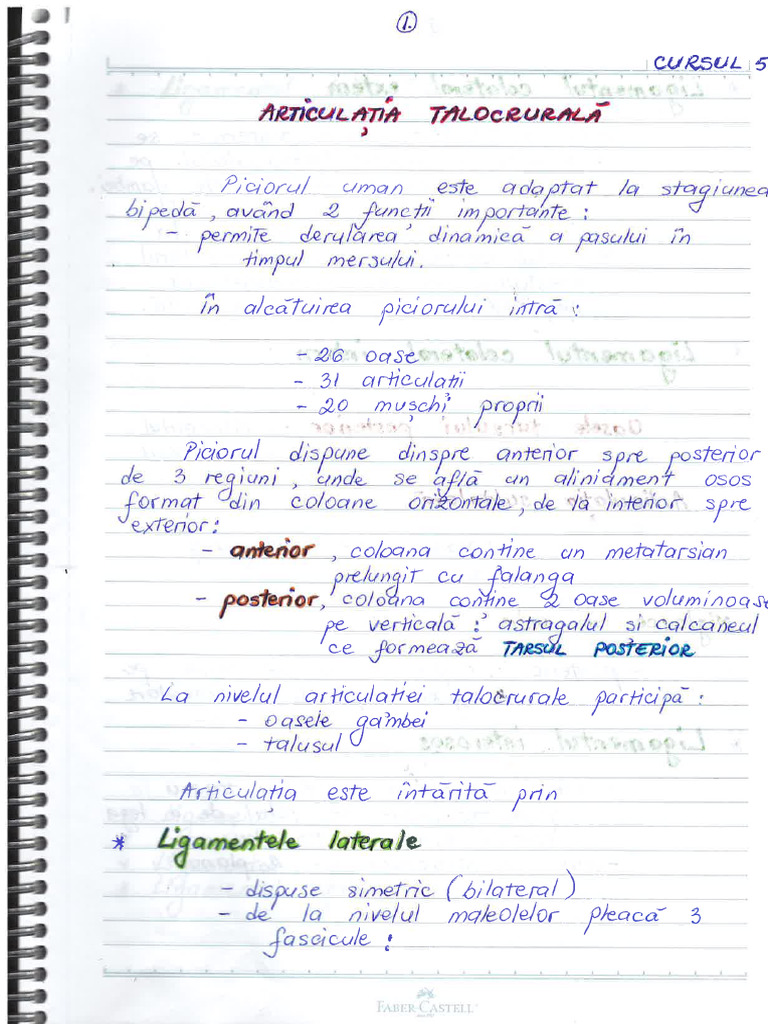 1.
CURSUL 5
ARTICULAȚIA TALOCRURALĂ
Piciorul uman este adaptat la stagiunea
bipedă, având 2 funcții importante:
- permite derularea dinamică a pasului în
timpul mersului.
În alcătuirea piciorului intră:
- 26 oase
- 31 articulații
- 20 mușchi proprii
Piciorul dispune dinspre anterior spre posterior
de 3 regiuni, unde se află un aliniament osos
format din coloane orizontale, de la interior spre
exterior:
- anterior, coloana conține un metatarsian
prelungit cu falanga
- posterior, coloana conține 2 oase voluminoase
pe verticală: astragalul și calcaneul
ce formează TARSUL POSTERIOR
La nivelul articulației talocrurale participă:
- oasele gambei
- talusul
Articulația este întărită prin
* Ligamentele laterale
- dispuse simetric (bilateral)
- de la nivelul maleolelor pleacă 3
fascicule:
FABER-CASTELL